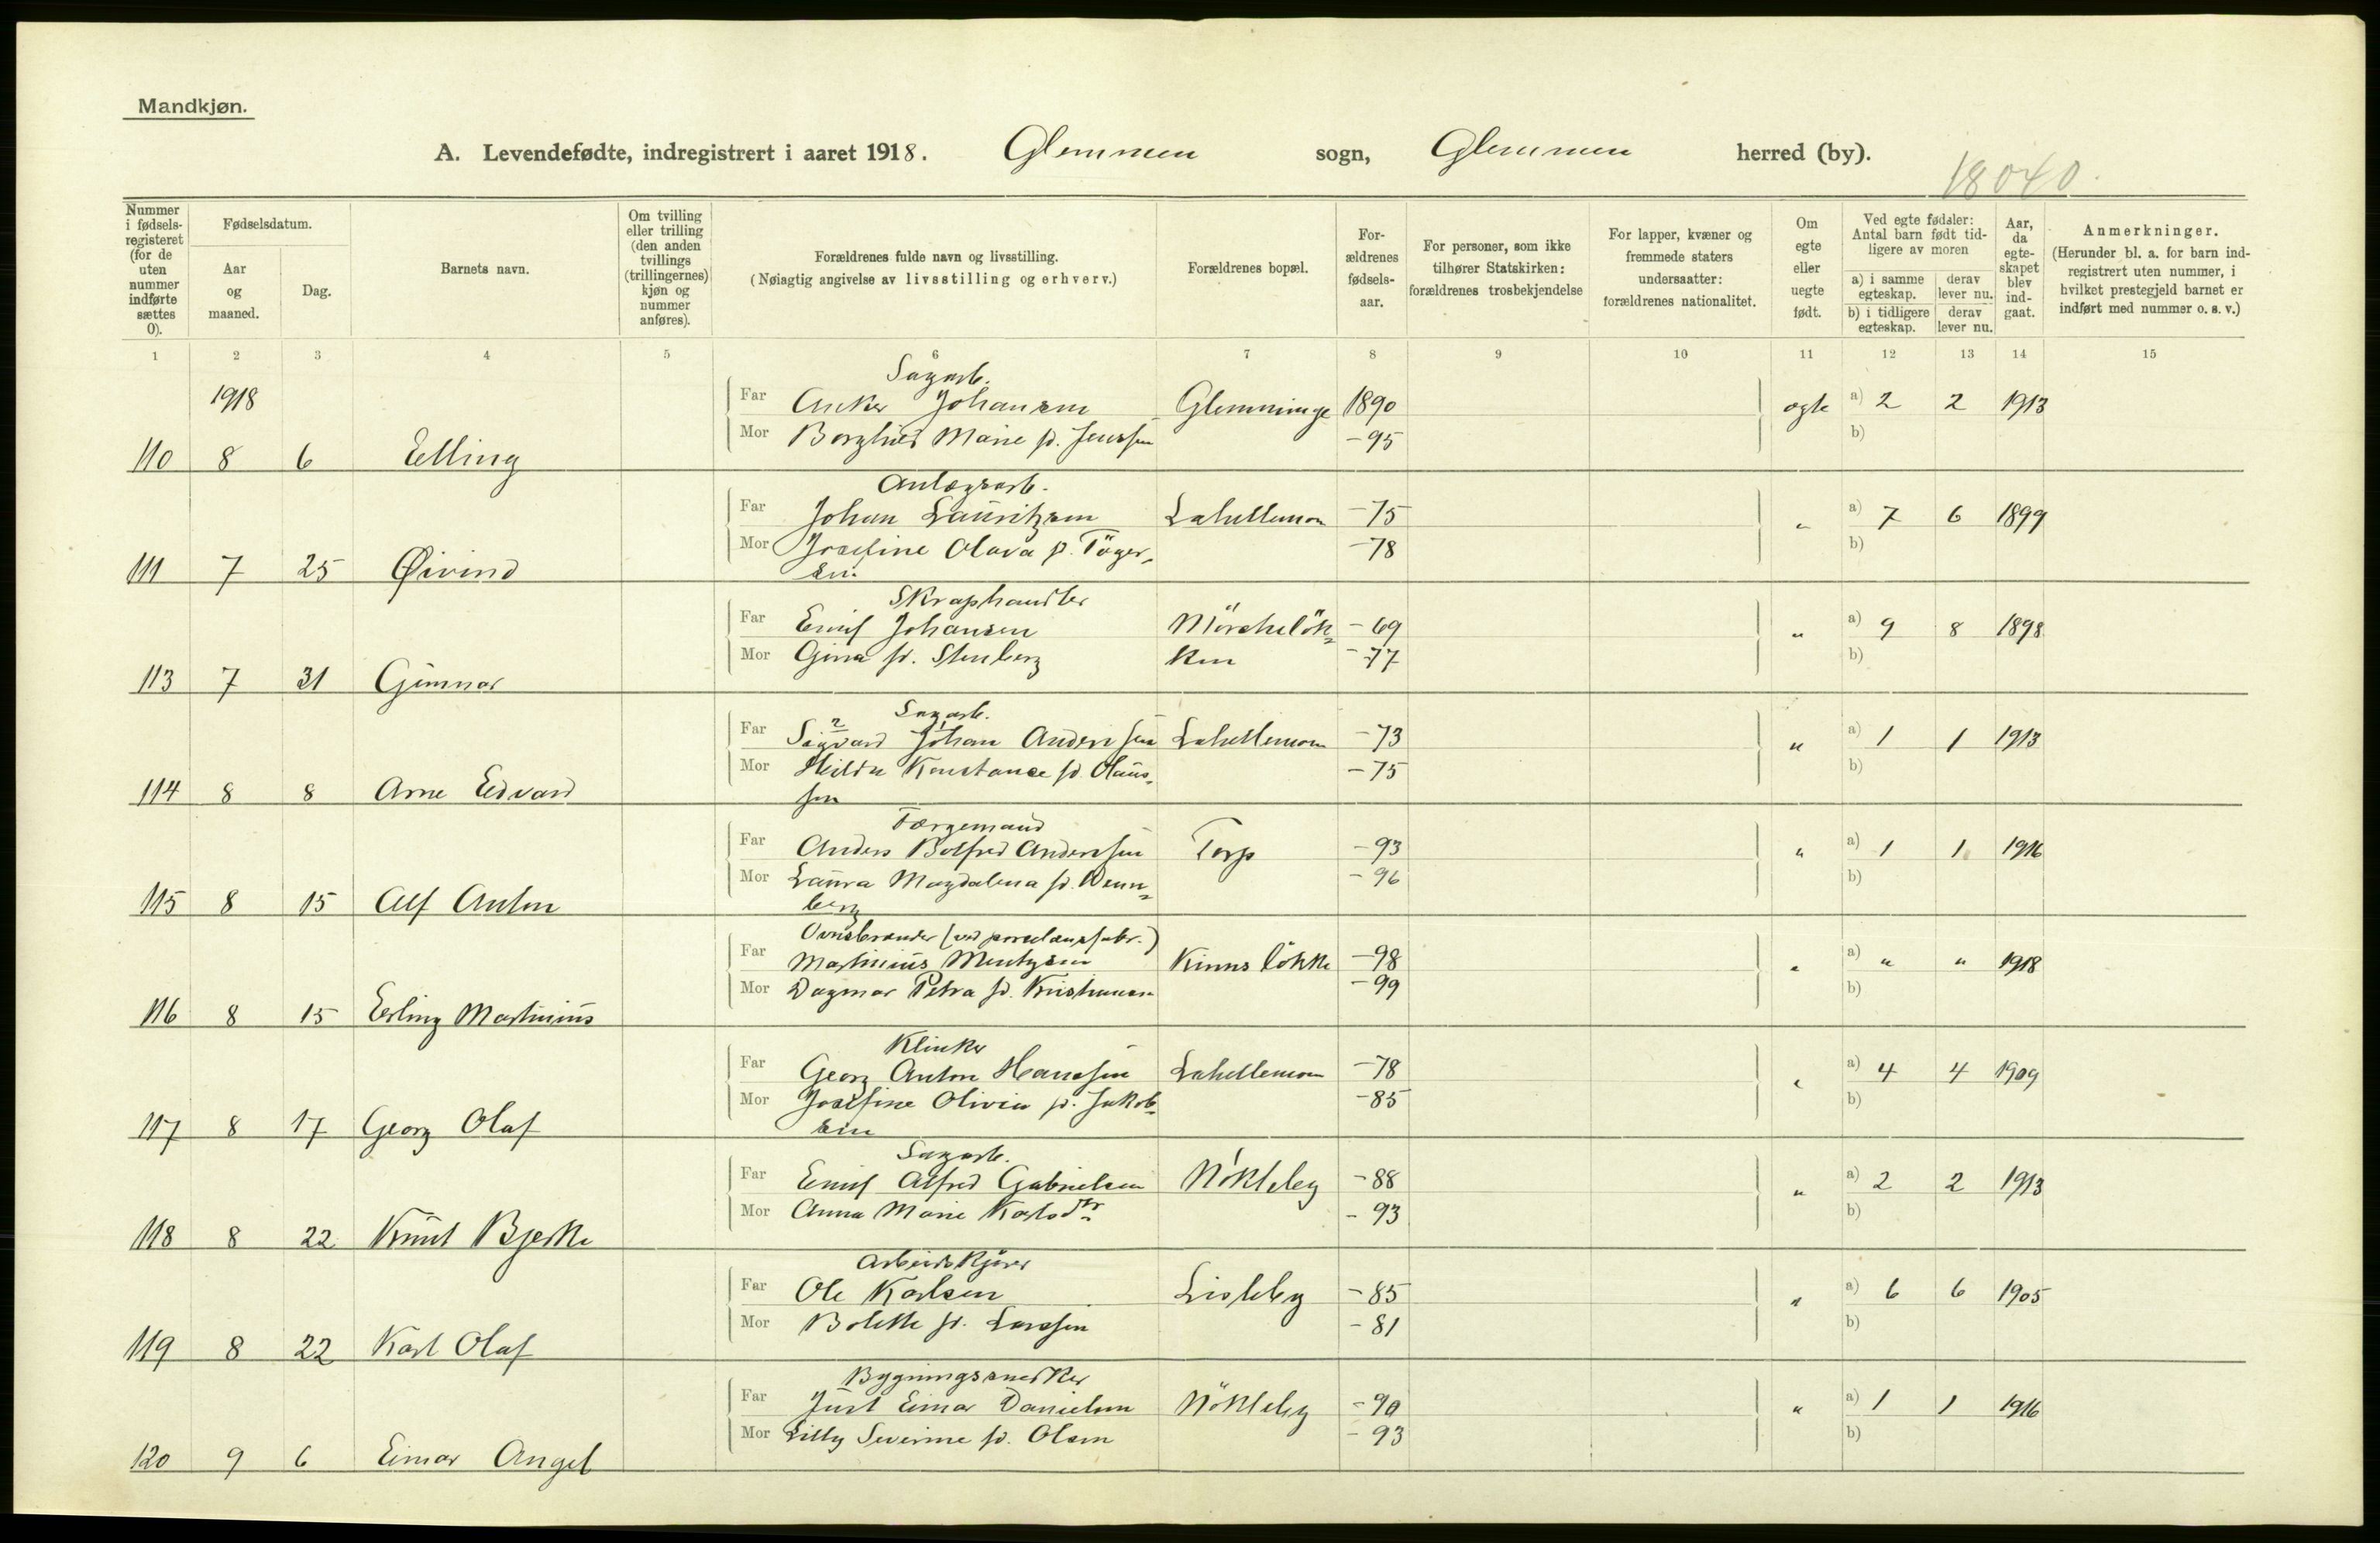 Mandkjøn.
A. Levendefødte, indregistrert i aaret 1918. Glemmen sogn, Glemmen herred (by).
18040.
Nummer i fødsels-registeret (for de uten nummer indførte sættes 0).
Fødselsdatum.
Aar og maaned.
Dag.
Barnets navn.
Om tvilling eller trilling (den anden tvillings (trillingernes) kjøn og nummer anføres).
Forældrenes fulde navn og livsstilling.
(Nøiagtig angivelse av livsstilling og erhverv.)
Forældrenes bopæl.
For-ældrenes fødsels-aar.
For personer, som ikke tilhører Statskirken: forældrenes trosbekjendelse
For lapper, kvæner og fremmede staters undersaatter: forældrenes nationalitet.
Om egte eller uegte født.
Ved egte fødsler: Antal barn født tid-ligere av moren
a) i samme egteskap. derav lever nu.
b) i tidligere egteskap. derav lever nu.
Aar, da egte-skapet blev ind-gaat.
Anmerkninger.
(Herunder bl. a. for barn ind-registrert uten nummer, i hvilket prestegjeld barnet er indført med nummer o. s. v.)
1 2 3 4 5 6 7 8 9 10 11 12 13 14 15
1918
Sagarb.
Far Anker Johansen Glemminge 1890 egte a) 2 2 1913
Mor Borghild Marie f. Jenssen -95 b)
110 8 6 Elling
Anlægsarb.
Far Johan Lauritzen Lahellemoen -75 " a) 7 6 1899
Mor Josefine Olava f. Töger-
sen -78 b)
111 7 25 Øivind
Skraphandler
Far Emil Johansen Mörchelök= -69 " a) 9 8 1898
Mor Gina f. Stenberg ken -77 b)
113 7 31 Gunnar
Sagarb.
Far Sigvard Johan Andersen Lahellemoen -73 " a) 1 1 1913
Mor Hilda Konstanse f. Olaus-
sen -75 b)
114 8 8 Arne Edvard
Færgemand
Far Anders Botfred Anderssen Torp -93 " a) 1 1 1916
Mor Laura Magdalena f. Wenn=
berg -96 b)
115 8 15 Alf Anton
Ovnsbrænder (ved porcelænsfabr.)
Far Martinius Mentzsen Kinns lökke -98 " a) " " 1918
Mor Dagmar Petra f. Kristiansen -99 b)
116 8 15 Erling Martinius
Klinker
Far Georg Anton Hanssen Lahellemoen -78 " a) 4 4 1909
Mor Josefine Olivia f. Jakob-
sen -85 b)
117 8 17 Georg Olaf
Sagarb.
Far Emil Alfred Gabrielsen Nökleby -88 " a) 2 2 1913
Mor Anna Marie Karlsdtr. -93 b)
118 8 22 Knut Bjerke
Arbeidskjører
Far Ole Karlsen Lisleby -85 " a) 6 6 1905
Mor Bolette f. Larssen -81 b)
119 8 22 Karl Olaf
Bygningssnedker
Far Just Einar Danielsen Nökleby -90 " a) 1 1 1916
Mor Lilly Severine f. Olsen -93 b)
120 9 6 Einar Angel